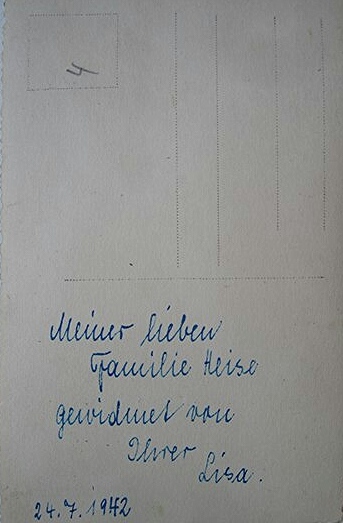 4
Meiner lieben
Familie Heise
gewidmet von
Ihrer
Lisa.
24.7.1942